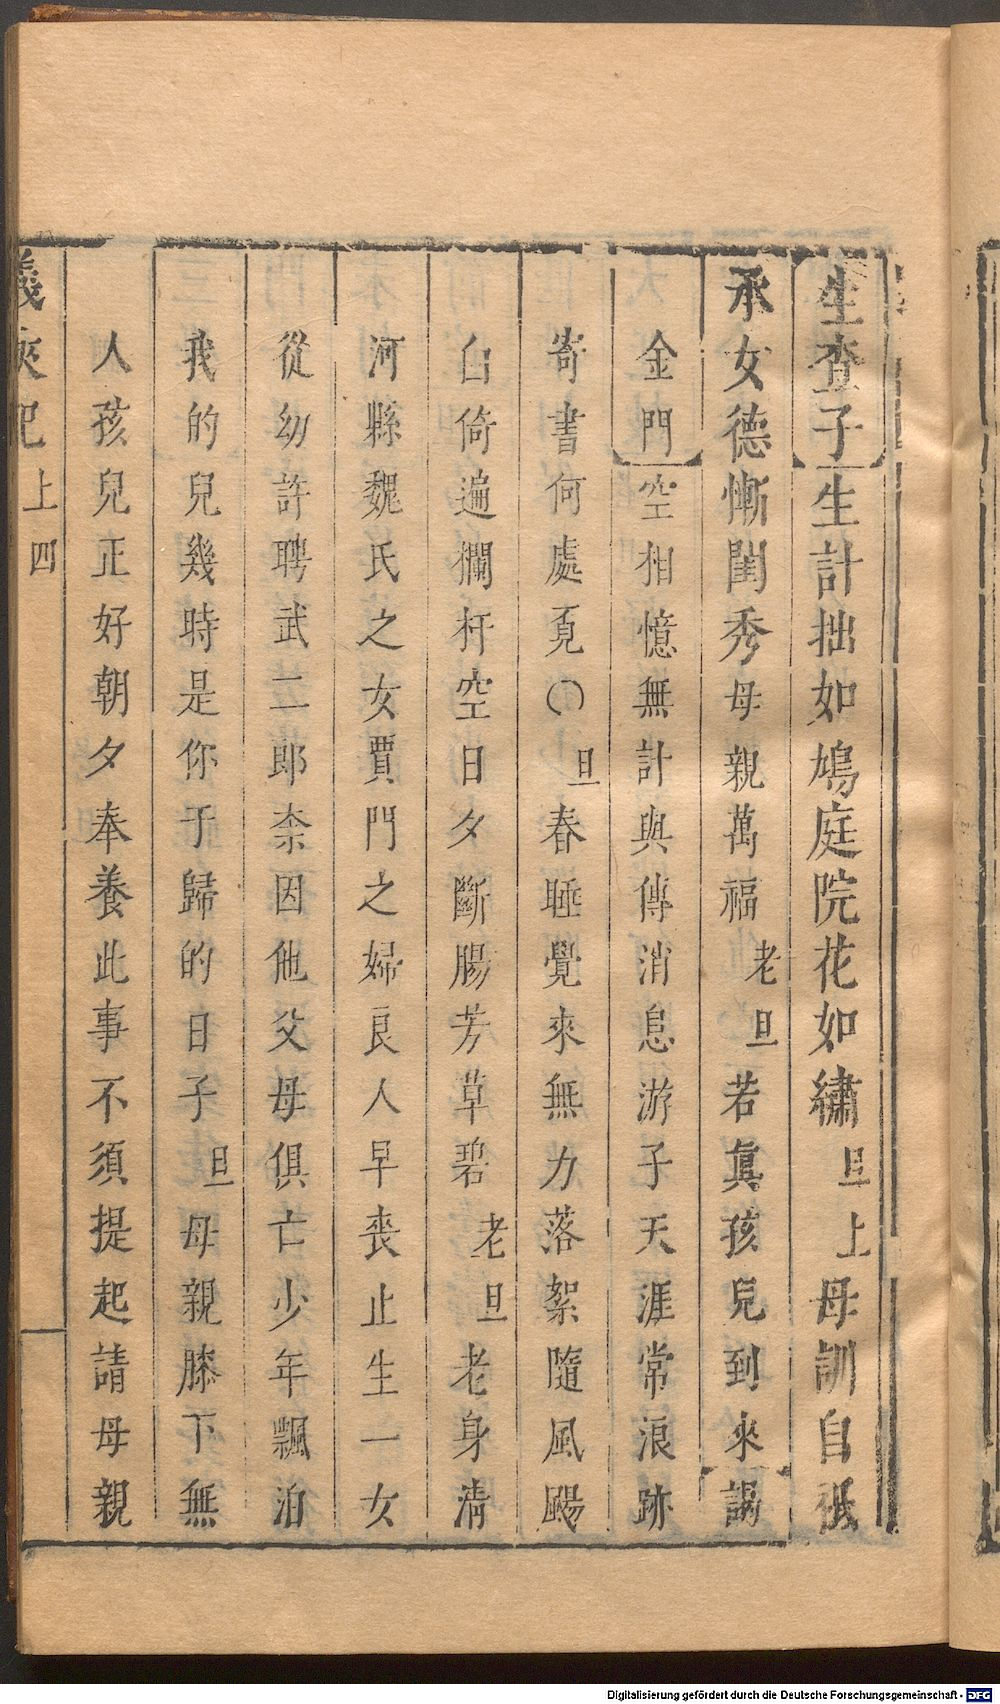 生查子生計拙如鳩庭院花如繡旦上母訓自祇
承女德慚閨秀母親萬福老旦若眞孩兒到來謁
金門空相憶無計與傳消息游子天涯常浪跡
寄書何處覓〇旦春睡覺來無力落絮隨風颺
白倚遍欄杆空日夕斷腸芳草碧老旦老身淸
河縣魏氏之女賈門之婦良人早喪止生一女
從幼許聘武二郎柰因他父母俱亡少年飄泊
我的兒幾時是你于歸的日子旦母親膝下無
人孩兒正好朝夕奉養此事不須提起請母親
義俠記上四
Digitalisierung gefördert durch die Deutsche Forschungsgemeinschaft - DFG